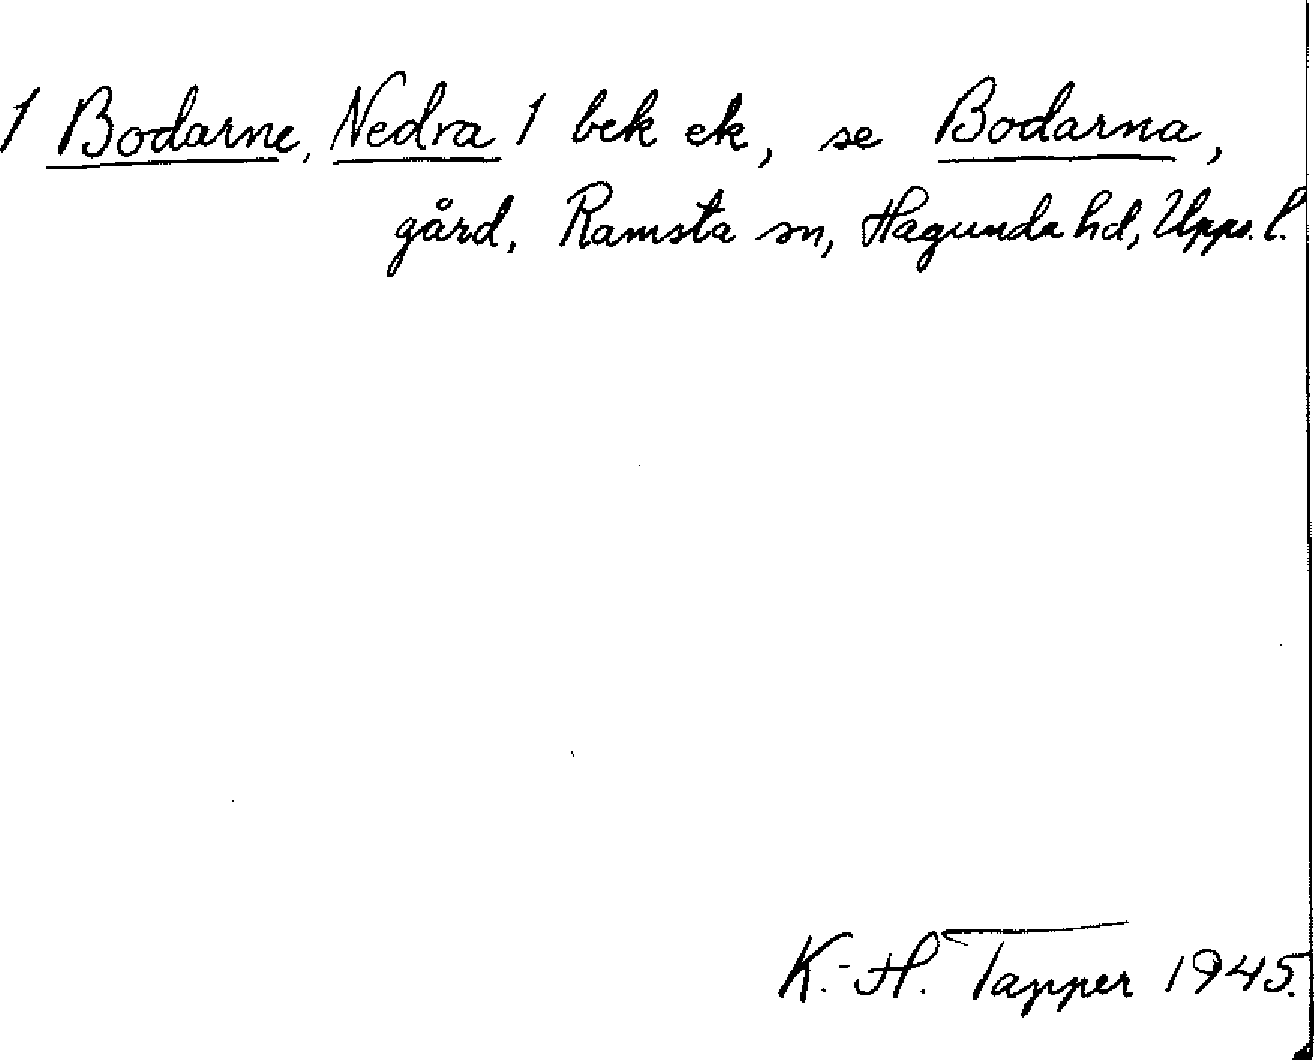 / Bodarne, Nedra / bek ek, se Bodarna,
gård, Ramsta sn, Hagunda hd, Upps. l.
K.-H. Tapper 1945.